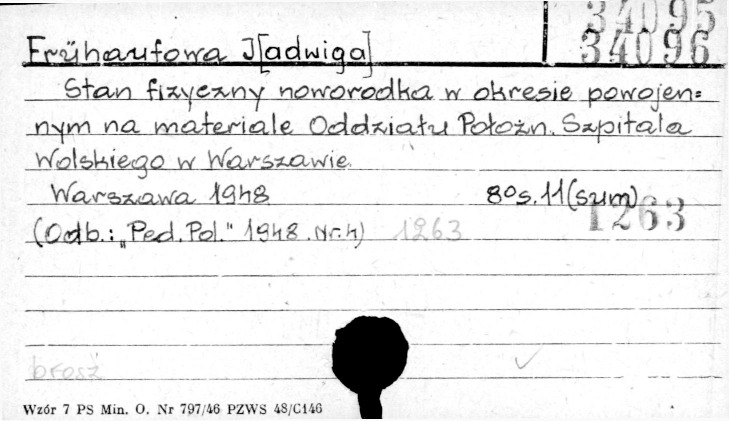 34095
34096
Frühaufowa J[adwiga]
Stan fizyczny noworodka w okresie powojen=
nym na materiale Oddziału Położn. Szpitala
Wolskiego w Warszawie.
Warszawa 1948 8° s. 11 (sum)
1263
(Odb.: „Ped. Pol." 1948. Nr. 4) 1263
brosz
Wzór 7 PS Min. O. Nr 797/46 PZWS 48/C146